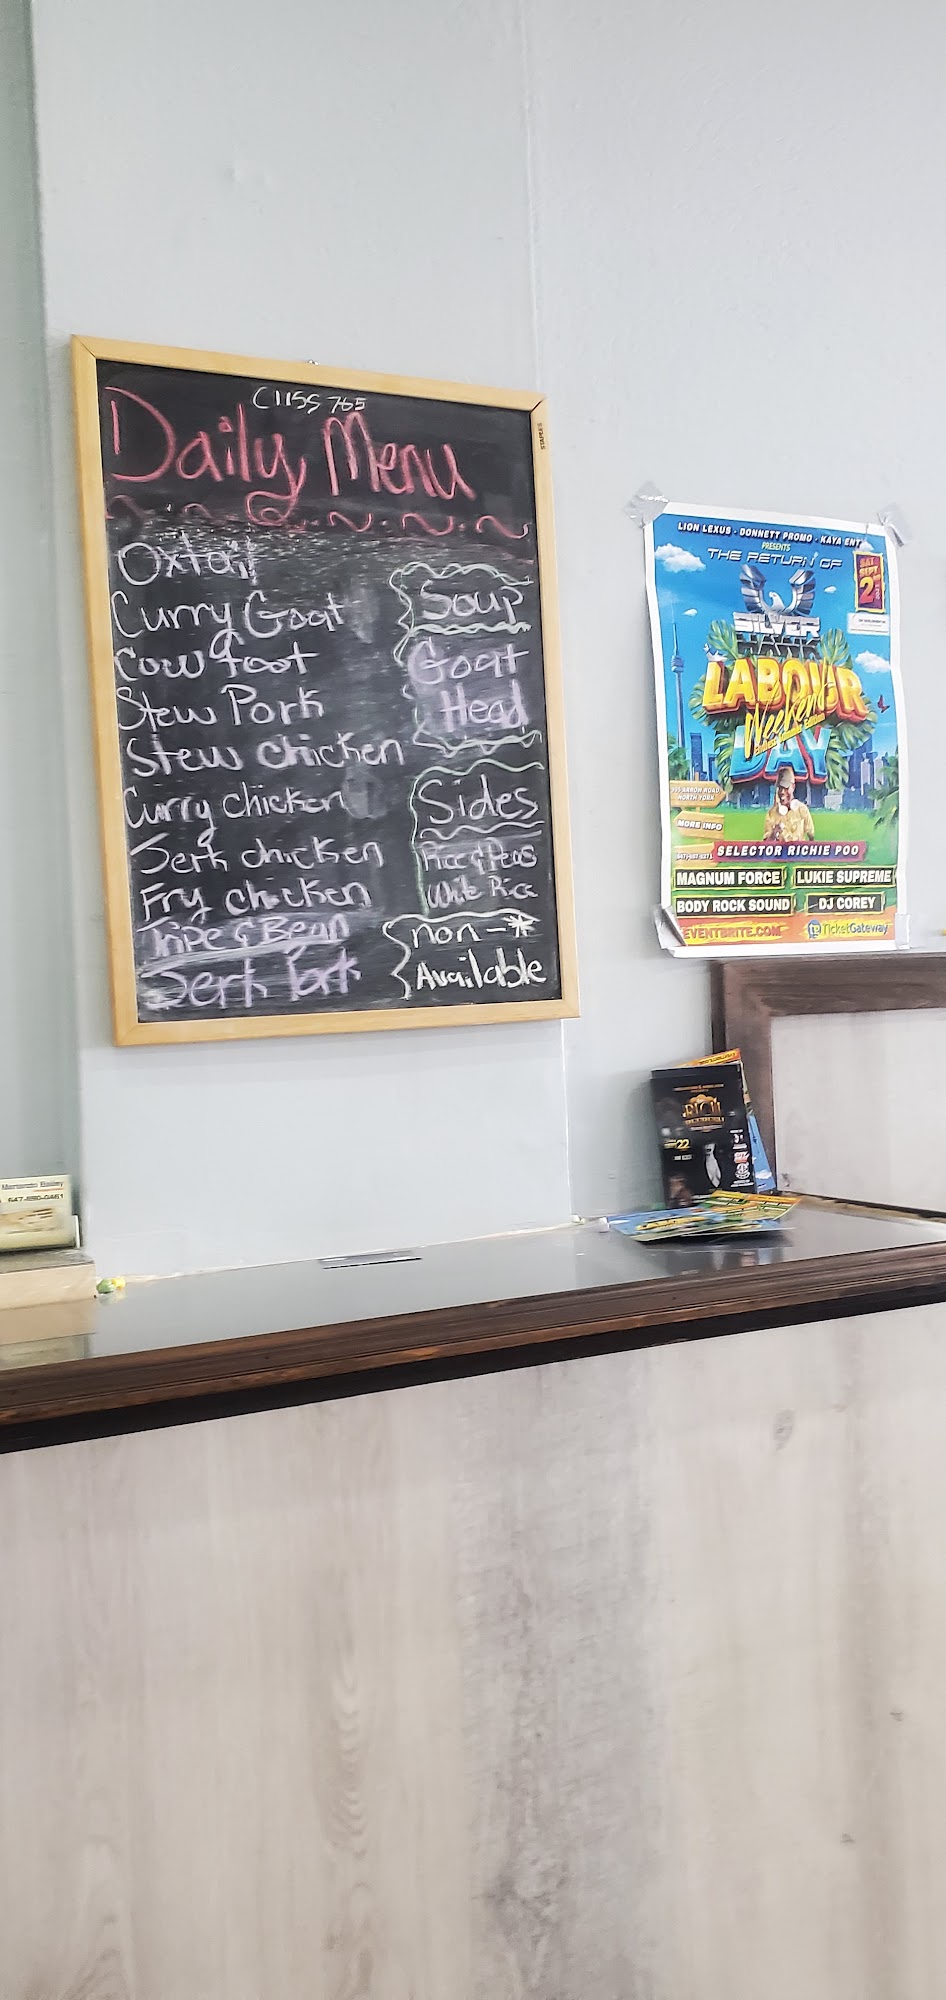 C1155 765
Daily Menu
Oxtail
Curry Goat
Cow foot
Stew Pork
Stew chicken
Curry chicken
Jerk chicken
Fry chicken
Tripe & Bean
Jerk Pork
Soup
Goat
Head
Sides
Rice & Peas
White Rice
non - *
Available
STAPLES
LION LEXUS · DONNETT PROMO · KAYA ENT
PRESENTS
THE RETURN OF
SAT
SEPT
2
SILVER
HAWK
LABOUR
Weekend
DAY
995 ARROW ROAD
NORTH YORK
MORE INFO
SELECTOR RICHIE POO
MAGNUM FORCE
LUKIE SUPREME
BODY ROCK SOUND
DJ COREY
EVENTBRITE.COM
TicketGateway
RICH
22
Bailey